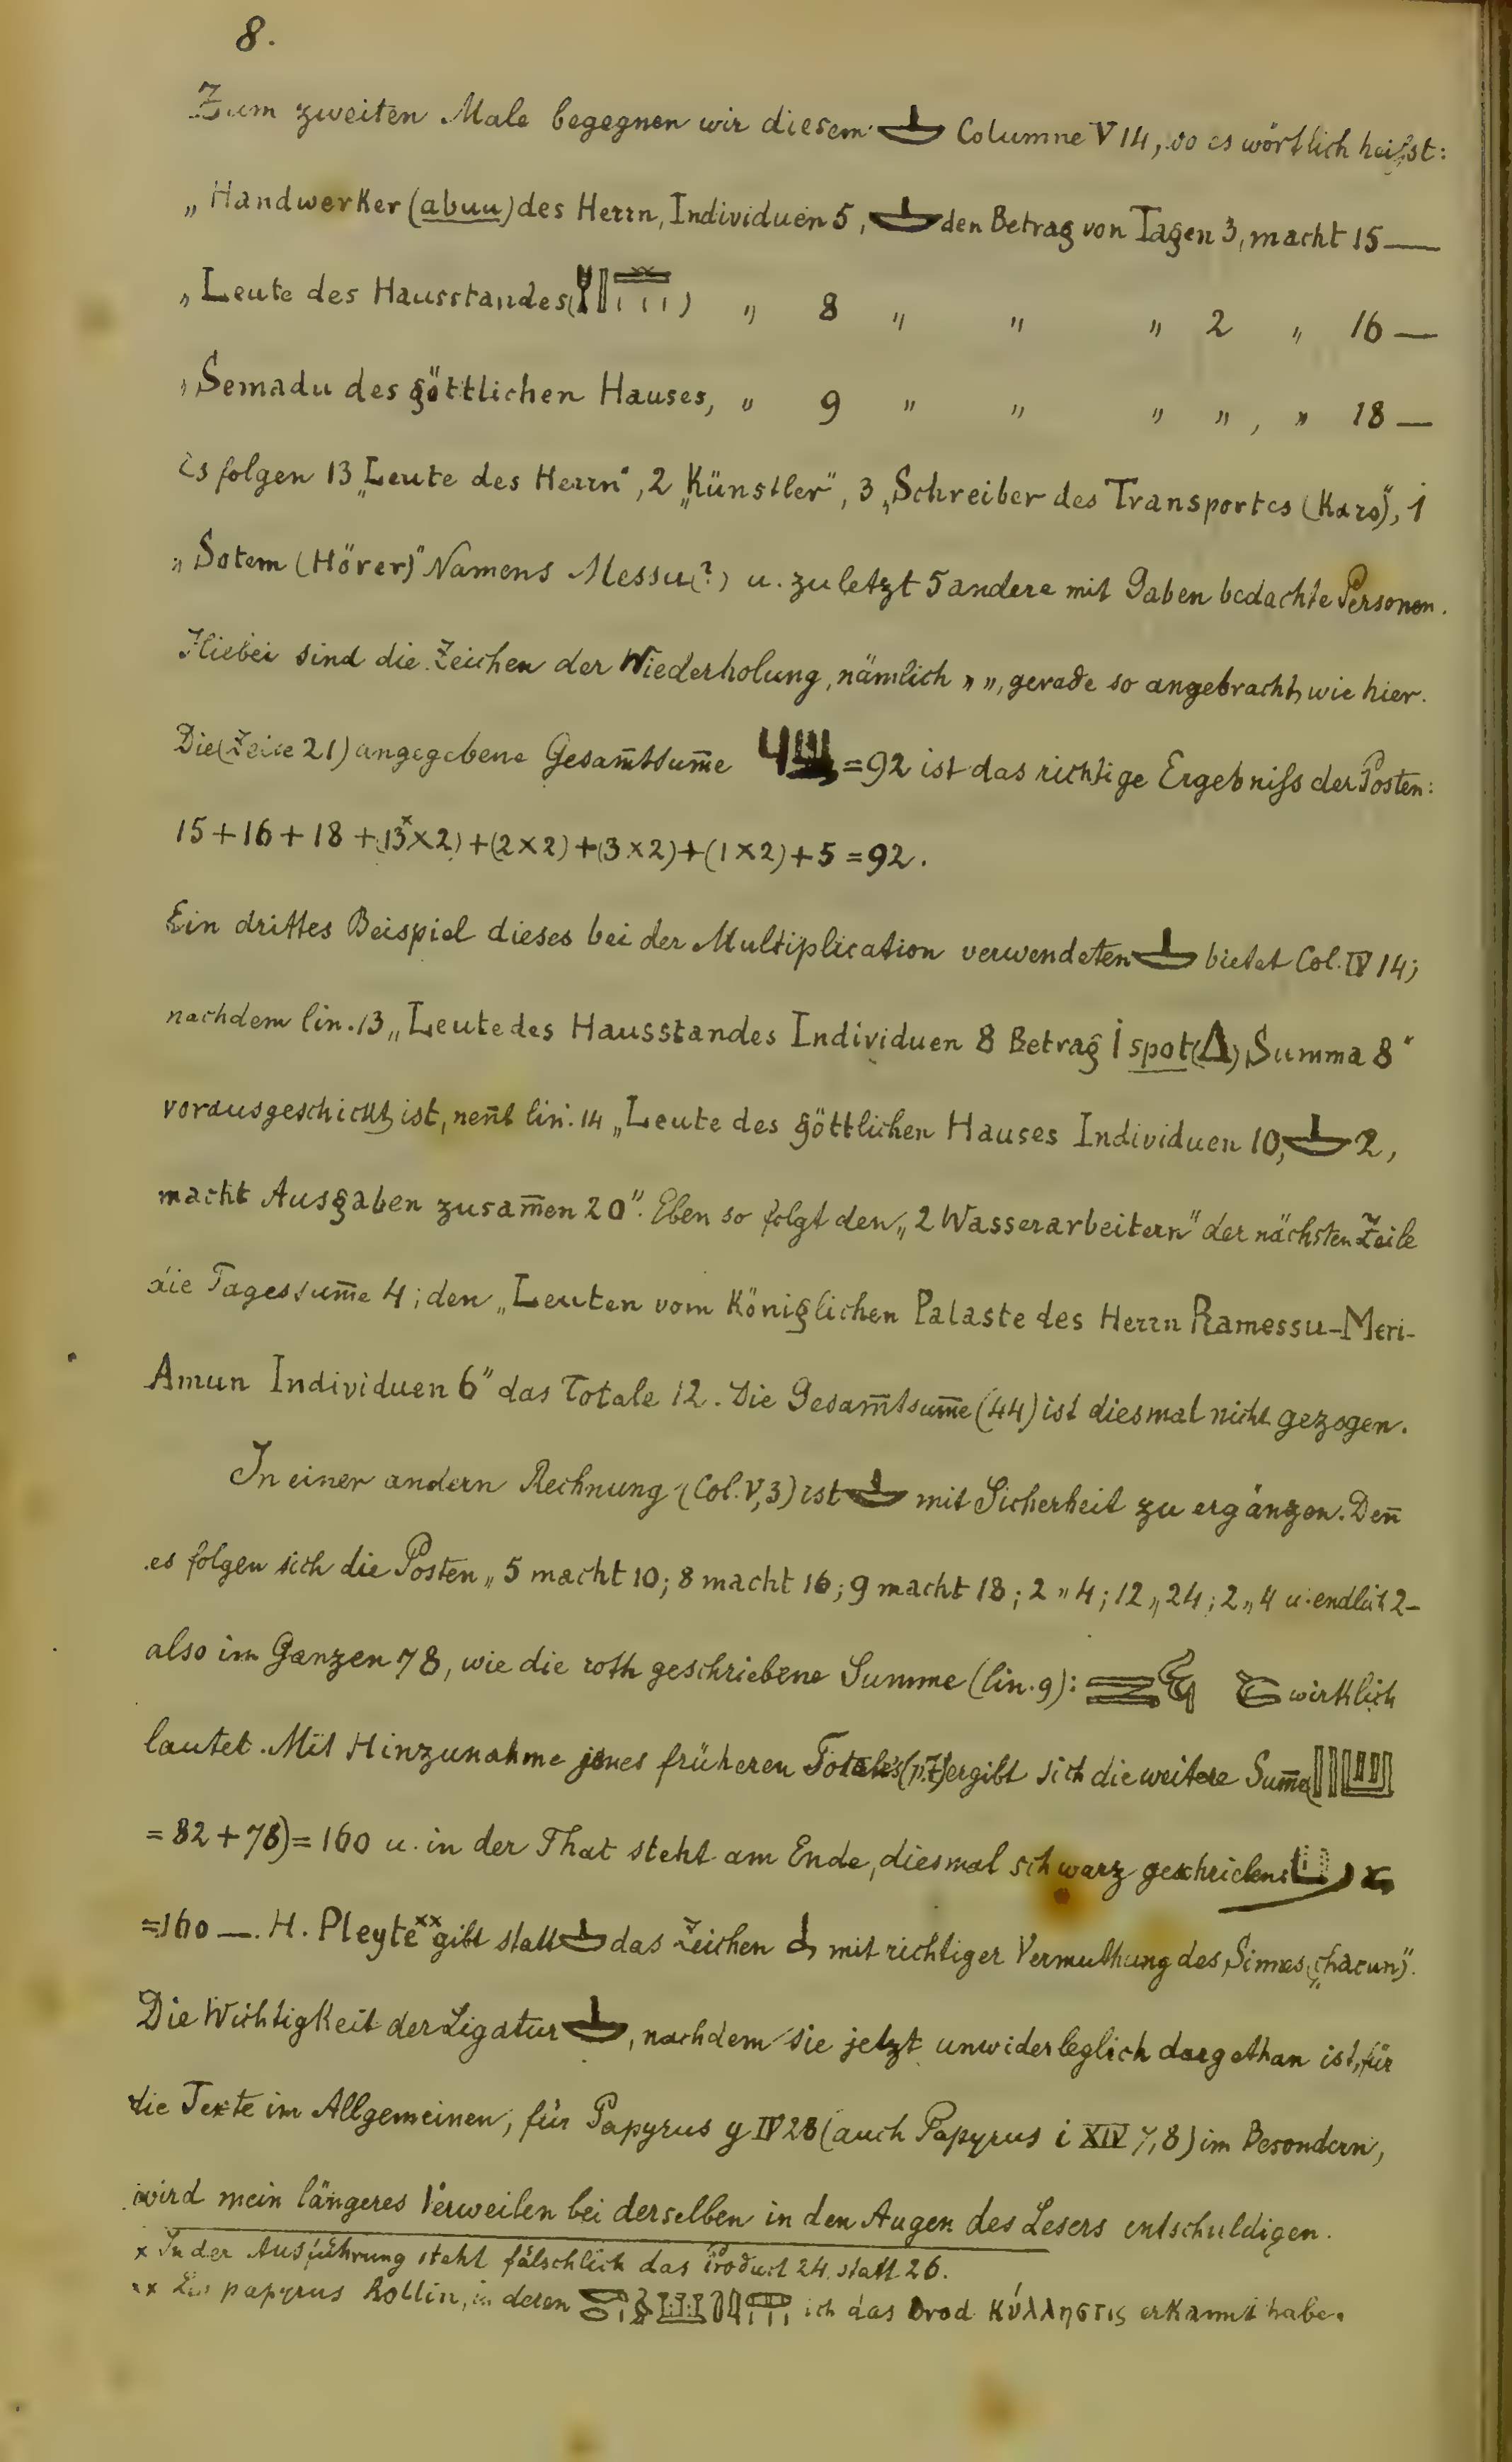 8.
Zum zweiten Male begegnen wir diesem Columne V 14, wo es wörtlich heißst:
„Handwerker (abuu) des Herrn, Individuen 5, den Betrag von Tagen 3, macht 15 —
„Leute des Hausstandes ( ) „ 8 „ „ „ 2 „ 16 —
„Semadu des göttlichen Hauses, „ 9 „ „ „ „ , „ 18 —
Es folgen 13 „Leute des Herrn“, 2 „Künstler“, 3 „Schreiber des Transportes (Karo)“, 1
„Sotem (Hörer)“ Namens Messu(?) u. zuletzt 5 andere mit Gaben bedachte Personen.
Hiebei sind die Zeichen der Wiederholung, nämlich „ „, gerade so angebracht, wie hier.
Die (Zeile 21) angegebene Gesam̅tsum̅e =92 ist das richtige Ergebniß der Posten:
15+16+18+(13ˣ×2)+(2×2)+(3×2)+(1×2)+5=92.
Ein drittes Beispiel dieses bei der Multiplication verwendeten bietet Col. IV 14;
nachdem lin. 13 „Leute des Hausstandes Individuen 8 Betrag 1 spot (Δ), Summa 8“
vorausgeschickt ist, nen̅t lin. 14 „Leute des göttlichen Hauses Individuen 10, 2,
macht Ausgaben zusam̅en 20“. Eben so folgt den „2 Wasserarbeitern“ der nächsten Zeile
die Tagessum̅e 4; den „Leuten vom Königlichen Palaste des Herrn Ramessu-Meri-
Amun Individuen 6“ das Totale 12. Die Gesam̅tsum̅e (44) ist diesmal nicht gezogen.
In einer andern Rechnung (Col. V, 3) ist mit Sicherheit zu ergänzen. Den̅
es folgen sich die Posten „5 macht 10; 8 macht 16; 9 macht 18; 2 „ 4; 12 „ 24; 2 „ 4 u. endlich 2 –
also im Ganzen 78, wie die roth geschriebene Summe (lin. 9): wirklich
lautet. Mit Hinzunahme jenes früheren Totales (p. 7) ergibt sich die weitere Sum̅e (
= 82 + 78) = 160 u. in der That steht am Ende, diesmal schwarz geschrieben:
=160 —. H. Pleyteˣˣ gibt statt das Zeichen mit richtiger Vermuthung des Sinnes „chacun“.
Die Wichtigkeit der Ligatur , nachdem sie jetzt unwiderleglich dargethan ist, für
die Texte im Allgemeinen, für Papyrus y IV 28 (auch Papyrus i XIV 7,8) im Besondern,
wird mein längeres Verweilen bei derselben in den Augen des Lesers entschuldigen.
x In der Ausführung steht fälschlich das Product 24 statt 26.
xx Les papyrus Rollin, in deren ich das Brod κύλληστις erkannt habe.